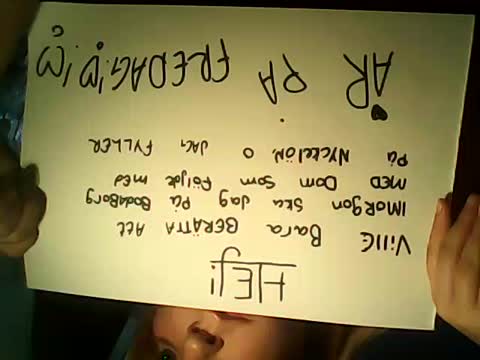 HEJ!
VillE Bara BERÄTTA ATT
IMORGON SKa Jag PÅ BODABorg
MED Dom Som Följde med
på NYCKELÖN, O JAG FYLLER
ÅR PÅ FREDAG! :D! :D